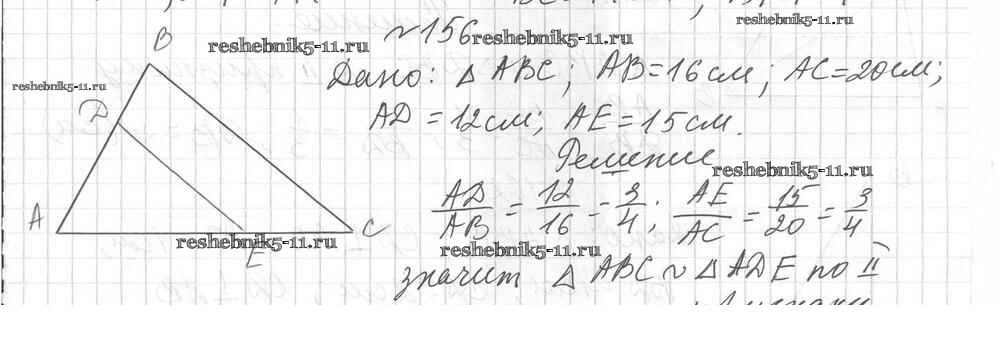 reshebnik5-11.ru
№156 reshebnik5-11.ru
B reshebnik5-11.ru
Дано: △ ABC; AB=16см; AC=20см;
reshebnik5-11.ru
D AD = 12см; AE=15см.
Решение
reshebnik5-11.ru
AD/AB = 12/16 = 3/4; AE/AC = 15/20 = 3/4
A C
reshebnik5-11.ru
E reshebnik5-11.ru
значит △ ABC ~ △ ADE по II